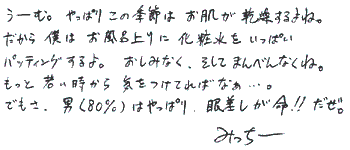 うーむ。やっぱりこの季節はお肌が乾燥するよね。
だから僕はお風呂上りに化粧水をいっぱい
パッティングするよ。おしみなく、そしてまんべんなくね。
もっと若い時から気をつけてればなぁ…。
でもさ、男(80%)はやっぱり、眼差しが命!!だぜ。
みっちー